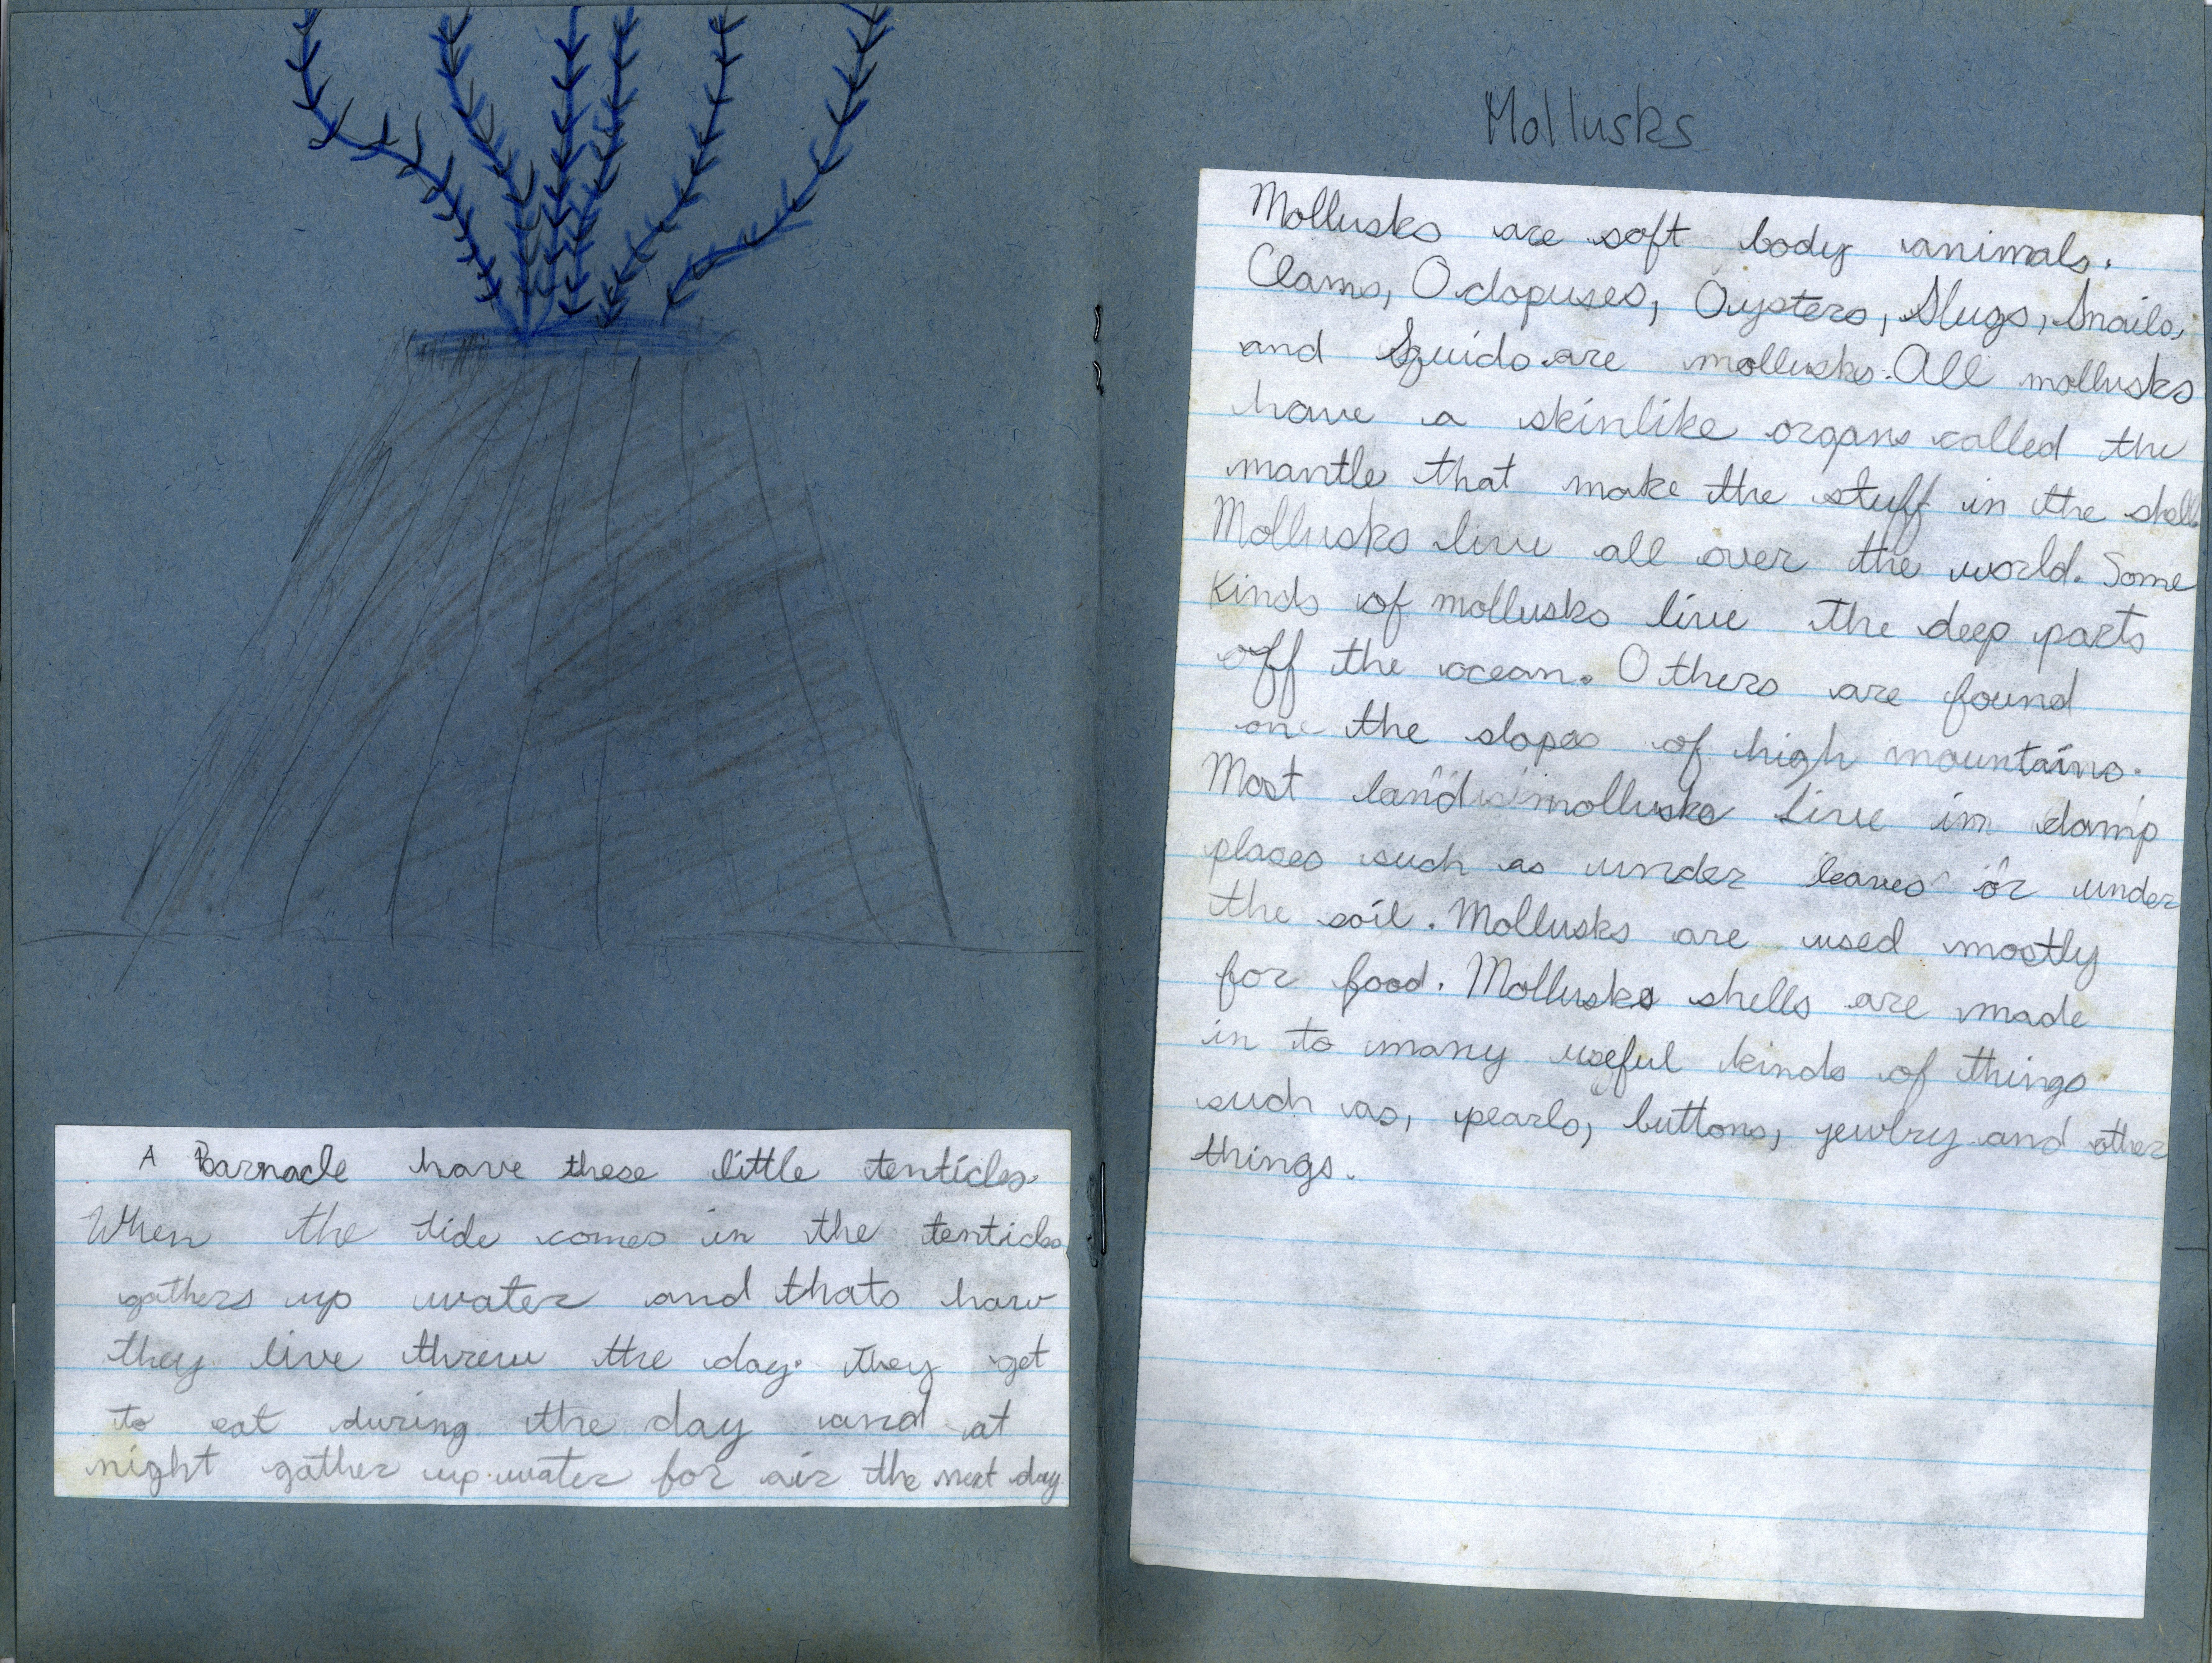 A Barnacle have these little tenticles.
When the tide comes in the tenticles
gathers up water and thats how
they live threw the day. They get
to eat during the day and at
night gather up water for air the next day
Mollusks
Mollusks are soft body animals.
Clams, Octopuses, Oysters, Slugs, Snails,
and Squids are mollusks. All mollusks
have a skinlike organs called the
mantle that make the stuff in the shell
Mollusks live all over the world. Some
kinds of mollusks live the deep parts
off the ocean. Others are found
one the slopes of high mountains.
Most land mollusks live in damp
places such as under leaves or under
the soil. Mollusks are used mostly
for food. Mollusks shells are made
in to many useful kinds of things
such as, pearls, buttons, jewlry and other
things.